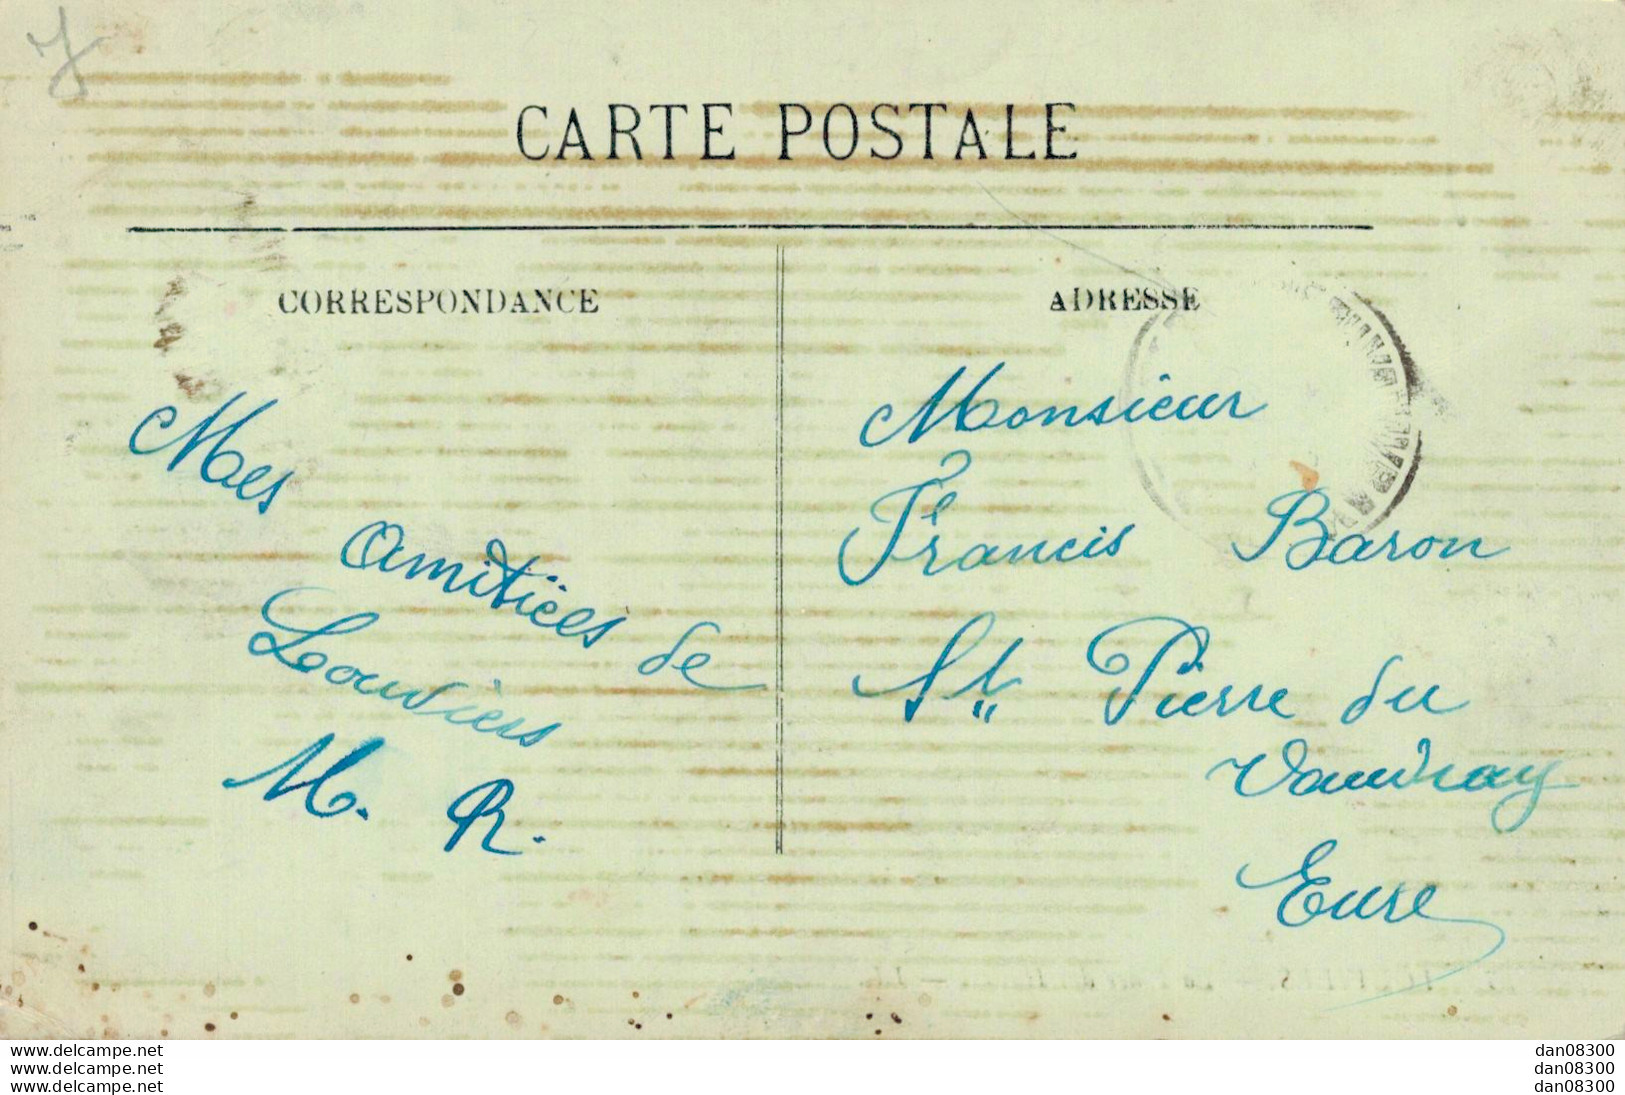 CARTE POSTALE
CORRESPONDANCE
Mes
amitiées de
Louviers
M. R.
ADRESSE
Monsieur
Francis Baron
St Pierre du
Vauvray
Eure
www.delcampe.net
www.delcampe.net
www.delcampe.net
dan08300
dan08300
dan08300